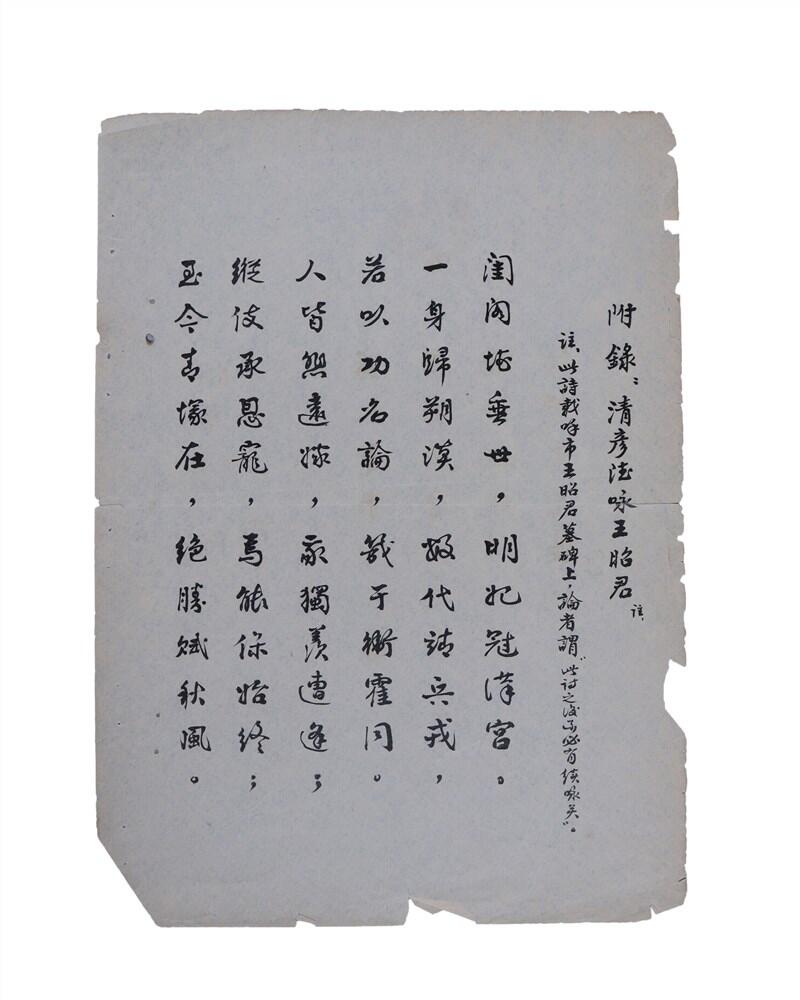 附錄:清彥德咏王昭君 註、
註、此詩載呼市王昭君墓碑上,論者謂“此詩之後不必有續咏矣”。
閨閣堪垂世,明妃冠漢宮。
一身歸朔漠,數代靖兵戎,
若以功名論,幾于衛霍同。
人皆悲遠嫁,我獨羨遭逢;
縱使承恩寵,焉能保始終;
至今青塚在,绝勝赋秋風。